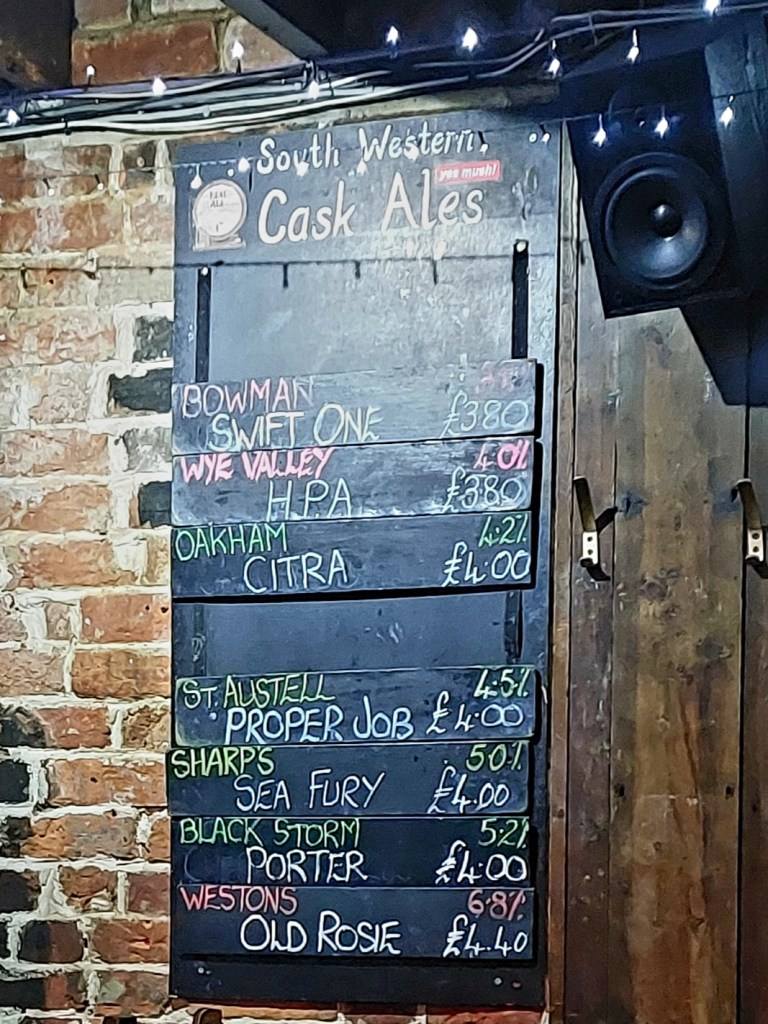 South Western
yes mush!
REAL
ALE
Cask Ales
BOWMAN
SWIFT ONE £3.80
WYE VALLEY 4.0%
H.P.A £3.80
OAKHAM 4.2%
CITRA £4.00
ST. AUSTELL 4.5%
PROPER JOB £4.00
SHARP'S 5.0%
SEA FURY £4.00
BLACK STORM 5.2%
PORTER £4.00
WESTONS 6.8%
OLD ROSIE £4.40